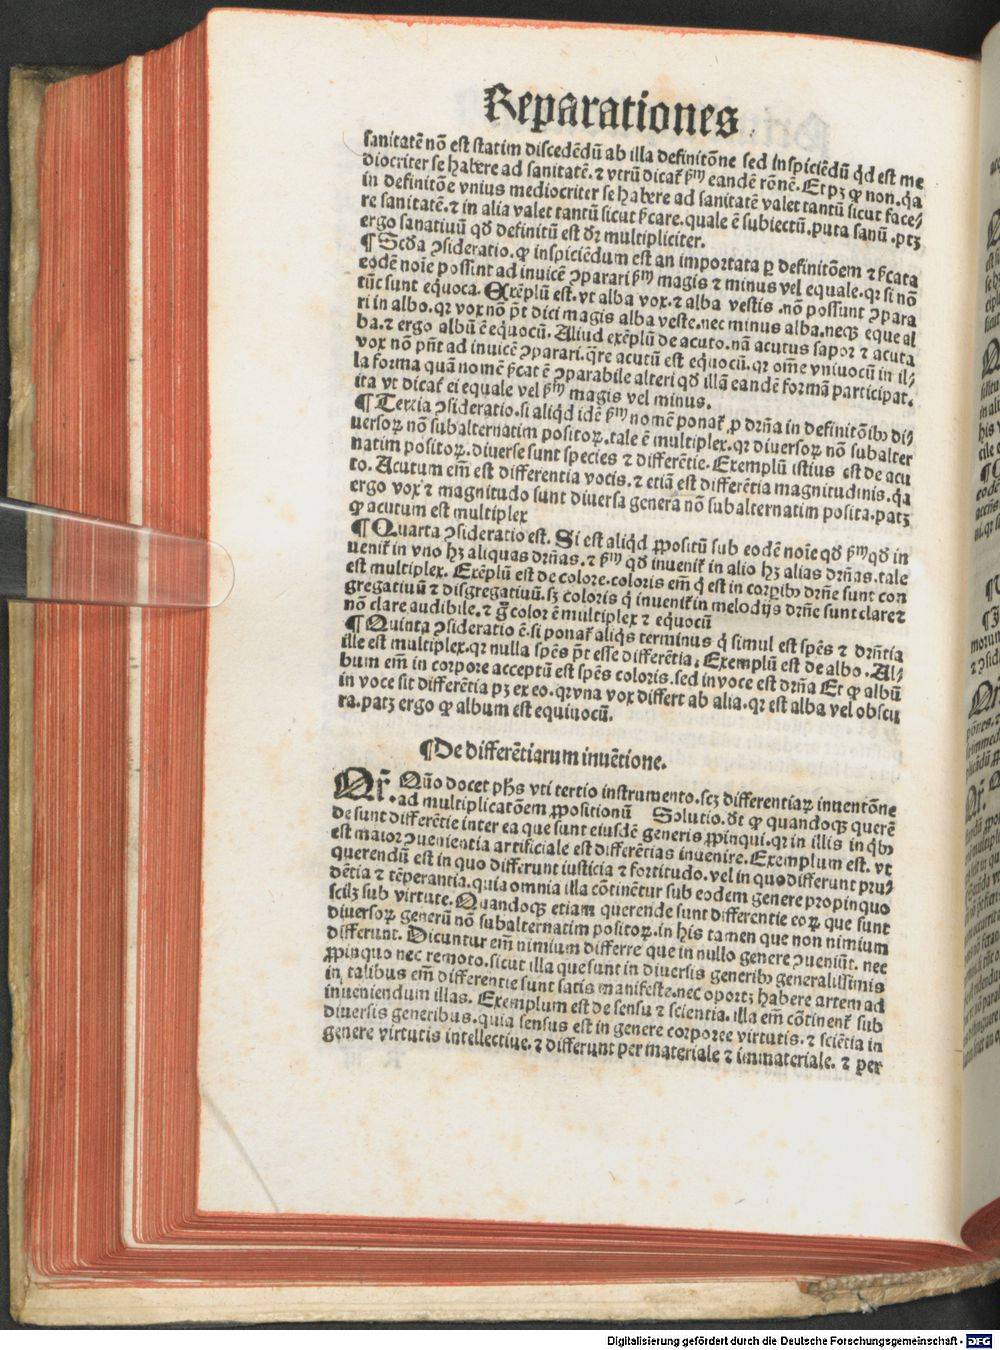 Reparationes
sanitatē nō est statim discedēdū ab illa definitōne sed inspiciēdū qd est me
diocriter se habere ad sanitatē. ⁊ vtrū dicat᷑ ꝑᵐ eandē rōnē. Et pꝫ ꝙ non. qꝛ
in definitōe vnius mediocriter se habere ad sanitatē valet tantū sicut face⸗
re sanitatē. ⁊ in alia valet tantū sicut p̄care. quale ē subiectū. puta sanū. ptꝫ
ergo sanatiuū qđ definitū est đr multipliciter.
¶ Scđa ↄsideratio. ꝙ inspiciēdum est an importata ꝑ definitōem ⁊ p̄cata
eodē noīe possint ad inuicē ↄparari ẜᵐ magis ⁊ minus vel equale. qꝛ si nō
tūc sunt equoca. Exēplū est. vt alba vox. ⁊ alba vestis. nō possunt ↄpara
ri in albo. qꝛ vox nō p̄t dici magis alba veste. nec minus alba. neqꝫ eque al
ba. ⁊ ergo albū ē equocū. Aliud exēplū de acuto. nā acutus sapor ⁊ acuta
vox nō pn̄t ad inuicē ↄparari. q̄re acutū est equocū. qꝛ om̄e vniuocū in il⸗
la forma quā nomē p̄cat ē ↄparabile alteri qđ illā eandē formā participat.
ita vt dicat᷑ ei equale vel ẜᵐ magis vel minus.
¶ Tercia ↄsideratio. si aliqd idē ẜᵐ nomē ponat᷑ ꝓ drn̄a in definitōibꝫ di⸗
uersoꝝ nō subalternatim positoꝝ. tale ē multiplex. qꝛ diuersoꝝ nō subalter
natim positoꝝ. diuerse sunt species ⁊ differētie. Exemplū istius est de acu
to. Acutum em̄ est differentia vocis. ⁊ etiā est differētia magnitudinis. qꝛ
ergo vox ⁊ magnitudo sunt diuersa genera nō subalternatim posita. patꝫ
ꝙ acutum est multiplex
¶ Quarta ↄsideratio est. Si est aliqd ꝓpositū sub eodē noīe qđ ẜᵐ qđ in
uenit᷑ in vno hꝫ aliquas drn̄as. ⁊ ẜᵐ qđ inuenit᷑ in alio hꝫ alias drn̄as. tale
est multiplex. Exēplū est de colore. coloris em̄ q̇ est in corꝑibꝫ drn̄e sunt con
gregatiuū ⁊ disgregatiuū. sꝫ coloris q̇ inuenit᷑ in melodijs drn̄e sunt clare ⁊
nō clare audibile. ⁊ g̊ color ē multiplex ⁊ equocū
¶ Quinta ↄsideratio ē. si ponat᷑ aliqs terminus q̇ simul est spēs ⁊ drn̄tia
ille est multiplex. qꝛ nulla spēs p̄t esse differētia. Exemplū est de albo. Al⸗
bum em̄ in corpore acceptū est spēs coloris. sed in voce est drn̄a Et ꝙ albū
in voce sit differētia pꝫ ex eo. qꝛ vna vox differt ab alia. qꝛ est alba vel obscu
ra. patꝫ ergo ꝙ album est equiuocū.
¶ De differētiarum inuētione.
Qr̄. Quō docet phs vti tertio instrumento. scꝫ differentiaꝝ inuentōne
. ad multiplicatōem ꝓpositionū Solutio. đt ꝙ quandoqꝫ querē
de sunt differētie inter ea que sunt eiusdē generis ꝓpinqui. qꝛ in illis in qbꝫ
est maior ↄuenientia artificiale est differētias inuenire. Exemplum est. vt
querendū est in quo differunt iusticia ⁊ fortitudo. vel in quo differunt pru⸗
dētia ⁊ tēperantia. quia omnia illa cōtinētur sub eodem genere propinquo
scilꝫ sub virtute. Quandoqꝫ etiam querende sunt differentie eoꝝ que sunt
diuersoꝝ generū nō subalternatim positoꝝ. in his tamen que non nimium
differunt. Dicuntur em̄ nimium differre que in nullo genere ↄueniūt. nec
ꝓpinquo nec remoto. sicut illa que sunt in diuersis generibꝫ generalissimis
in talibus em̄ differentie sunt satis manifeste. nec oportꝫ habere artem ad
inueniendum illas. Exemplum est de sensu ⁊ scientia. illa em̄ cōtinent᷑ sub
diuersis generibus. quia sensus est in genere corporee virtutis. ⁊ sciētia in
genere virtutis intellectiue. ⁊ differunt per materiale ⁊ immateriale. ⁊ per
Digitalisierung gefördert durch die Deutsche Forschungsgemeinschaft - DFG